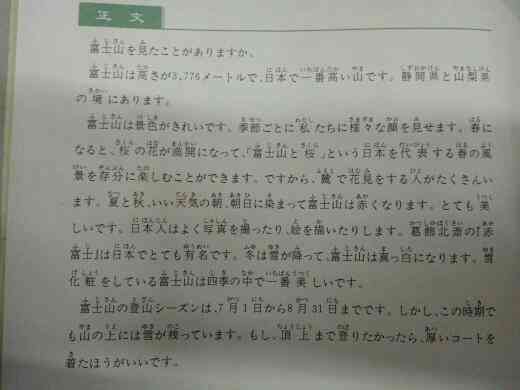 正 文
富士山を見たことがありますか。
富士山は高さが3,776メートルで、日本で一番高い山です。静岡県と山梨県
の境にあります。
富士山は景色がきれいです。季節ごとに私たちに様々な顔を見せます。春に
なると、桜の花が満開になって、「富士山と桜」という日本を代表する春の風
景を存分に楽しむことができます。ですから、麓で花見をする人がたくさんい
ます。夏と秋、いい天気の朝、朝日に染まって富士山は赤くなります。とても美
しいです。日本人はよく写真を撮ったり、絵を描いたりします。葛飾北斎の『赤
富士』は日本でとても有名です。冬は雪が降って、富士山は真っ白になります。雪
化粧をしている富士山は四季の中で一番美しいです。
富士山の登山シーズンは、7月1日から8月31日までです。しかし、この時期で
も山の上には雪が残っています。もし、頂上まで登りたかったら、厚いコートを
着たほうがいいです。